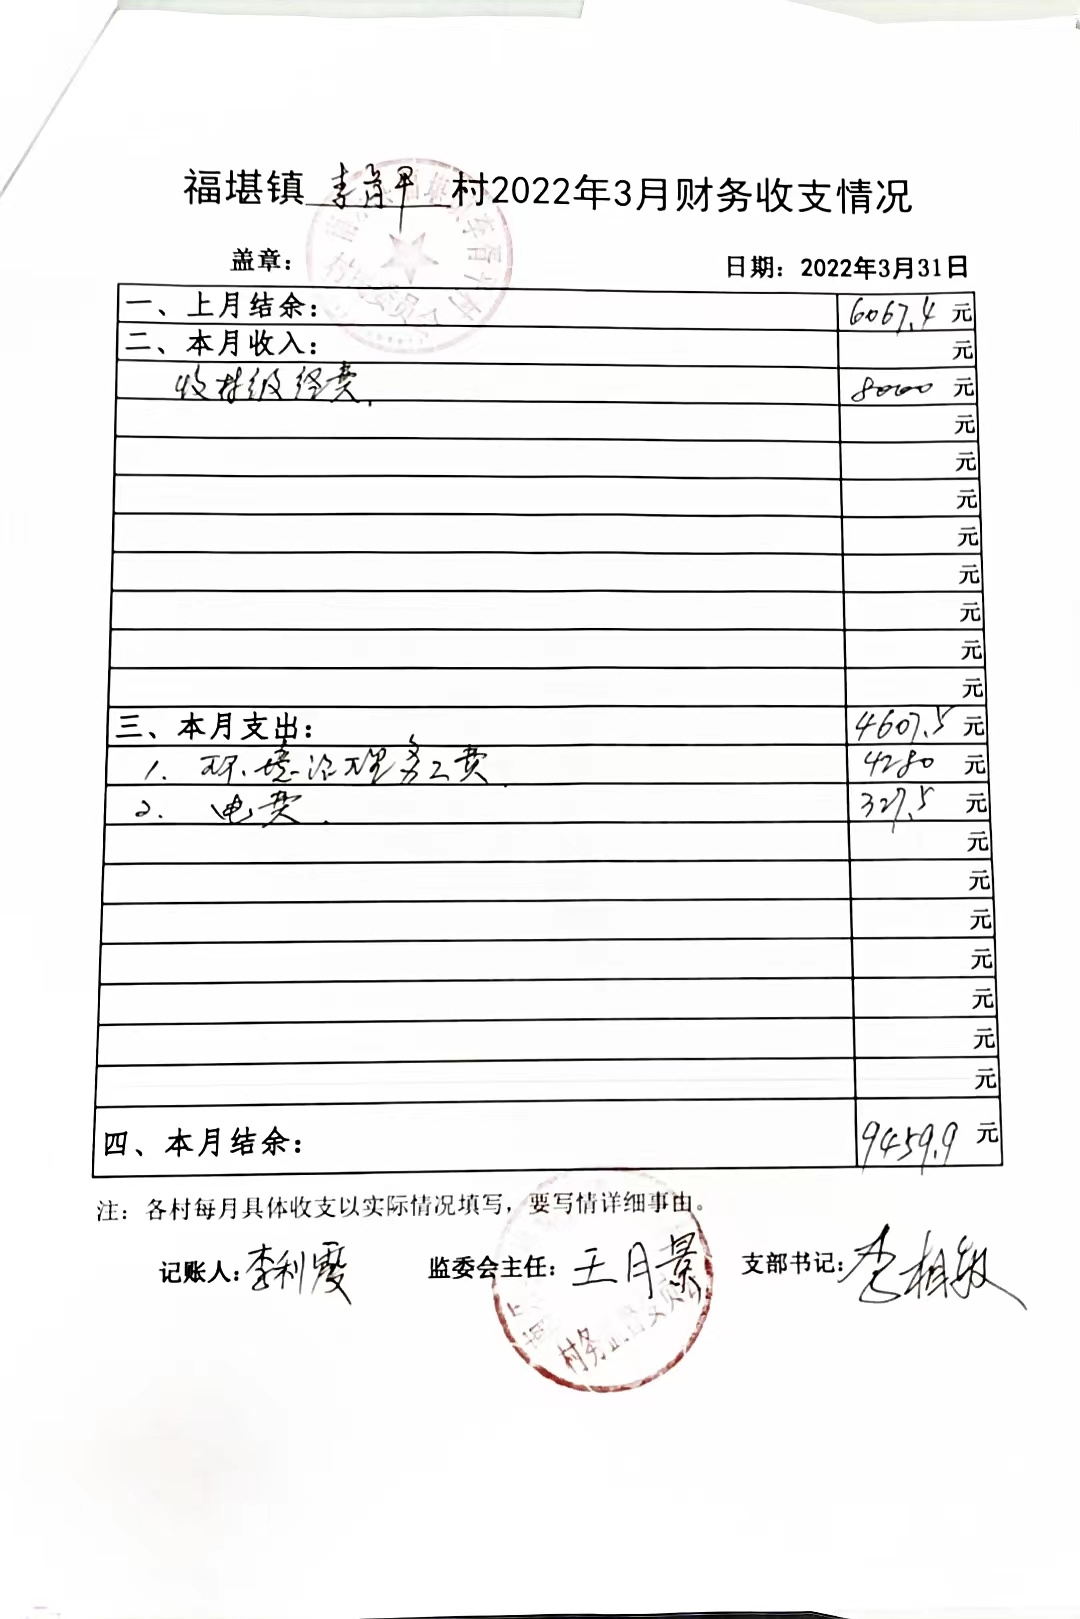 福堪镇李胥甲村2022年3月财务收支情况
盖章： 日期：2022年3月31日
一、上月结余： 6067.4 元
二、本月收入： 元
收村级经费. 8000 元
元
元
元
元
元
元
元
元
三、本月支出： 4607.5 元
1. 环境治理务工费. 4280 元
2. 电费. 327.5 元
元
元
元
元
元
元
元
四、本月结余： 9459.9 元
注：各村每月具体收支以实际情况填写，要写情详细事由。
记账人：李利霞 监委会主任：王月景 支部书记：李相敏
村务监督委员会